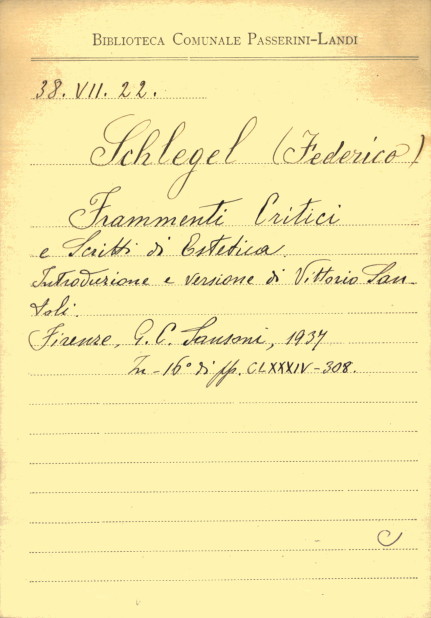 BIBLIOTECA COMUNALE PASSERINI-LANDI
38. VII. 22.
Schlegel (Federico)
Frammenti Critici
e Scritti di Estetica.
Introduzione e versione di Vittorio San-
toli.
Firenze, G. C. Sansoni, 1937
In-16° di pp. CLXXXIV-308.
C